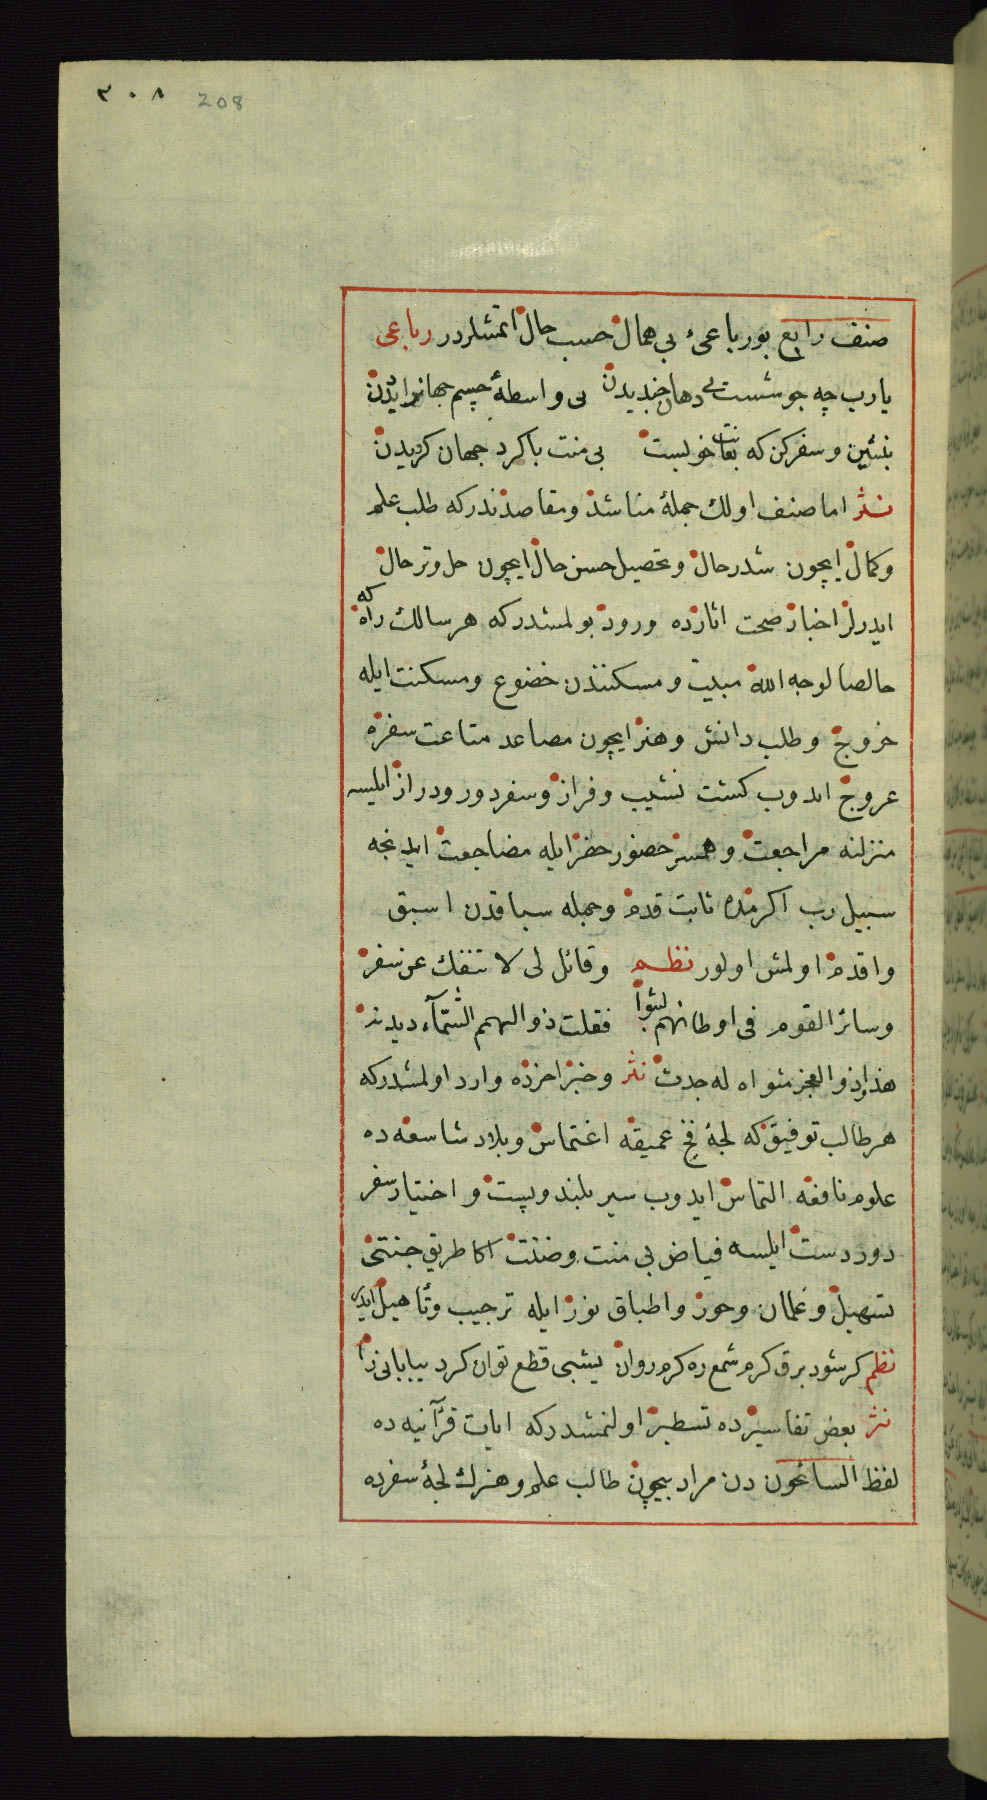 ۲۰۸ 208
صنف رابع بو رباعیٔ بی همال حسب حال اتمشلردر رباعی
یارب چه جوشست بی دهان خندیدن بی واسطهٔ چسم جهانرا دیدن
بنشین و سفر کن که بغایت خوبست بی منت پا کرد جهان کردیدن
نثر اما صنف اولك جملهٔ مناشد و مقاصدندر که طلب علم
وکمال ایچون شدرحال و تحصیل حسن حال ایچون حل و ترحال
ایدرلر اخبار صحت اثارده ورود بولمشدر که هر سالك راه که
خالصا لوجه الله مبیت و مسکنندن خضوع و مسکنت ایله
خروج و طلب دانش و هنر ایچون مصاعد متاعت سفره
عروج ایدوب کشت نشیب و فراز و سفر دور و دراز ایلیسه
منزلنه مراجعت و همسر حضور حضر ایله مضاجعت ایدنجه
سبیل رب اکرمده ثابت قدم و جمله سباقدن اسبق
و اقدم اولمش اولور نظم وقائل لی لا تنفك عن سفر
وسائر القوم فی اوطانهم لبثوا فقلت ذو الهمم الشمآء دیدنه
هذا وذو العجز مثواه له جدث نثر و خبر اخرده وارد اولمشدر که
هر طالب توفیق که لجهٔ فج عمیقه اغتماس و بلاد شاسعه ده
علوم نافعه التماس ایدوب سیر بلند و پست و اختیار سفر
دور دست ایلسه فیاض بی منت وضنت اکا طریق جنتی
تسهیل و غلمان و حور و اطباق نور ایله ترجیب و تأهیل ایدر
نظم کر شود برق کرم شمع ره کرم روان بشبی قطع توان کرد بیابانی را
نثر بعض تفاسیرده تسطیر اولنمشدر که ایات قرآنیه ده
لفظ السائحون دن مراد بیچون طالب علم و هنرك لجهٔ سفرده